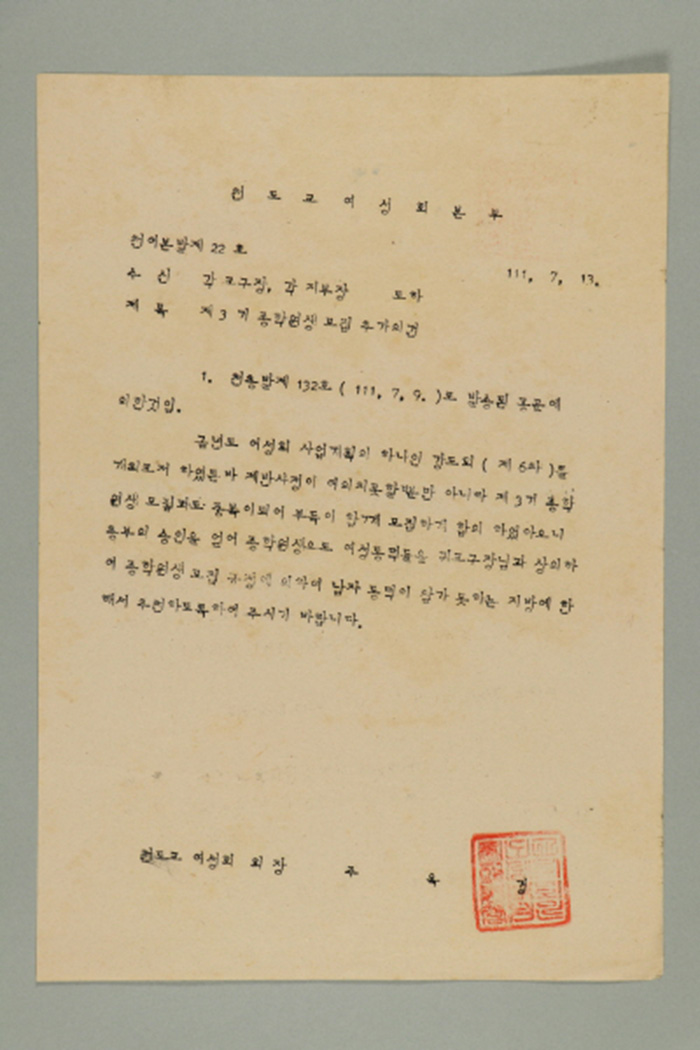 천 도 교 여 성 회 본 부
천여본발제 22 호
111. 7. 13.
수 신 각 교구장, 각 지부장 도하
제 목 제 3 기 종학원생 모집 추가의건
1. 천종발제 132호 ( 111. 7. 9. )로 발송된 공문에
의한것임.
금년도 여성회 사업계획의 하나인 강도회 ( 제 6차 )를
개최코저 하였든바 제반사정이 여의치못할뿐만 아니라 제 3기 종학
원생 모집과도 중복이되어 부득이 함께 모집하기 합의 하였아오니
총부의 승인을 얻어 종학원생으로 여성동덕들을 귀교구장님과 상의하
여 종학원생 모집 규정에 의하여 남자 동덕이 참가 못하는 지방에 한
해서 추천하도록하여 주시기 바랍니다.
천도교 여성회 회 장 주 옥 경